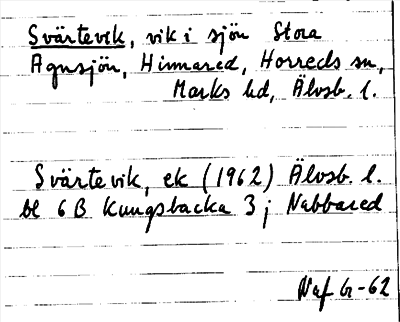 Svärtevik, vik i sjön Stora
Agnsjön, Hinnared, Horreds sn,
Marks hd, Älvsb. l.
Svärtevik, ek (1962) Älvsb. l.
bl 6 B Kungsbacka 3 j Nabbared
Naf G-62